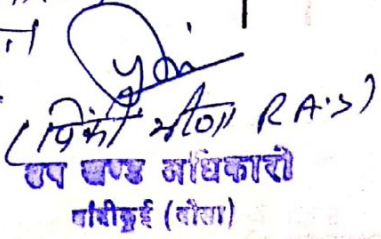 (पिंकी मीणा RAS)
उप खण्ड अधिकारी
बांदीकुई (दौसा)